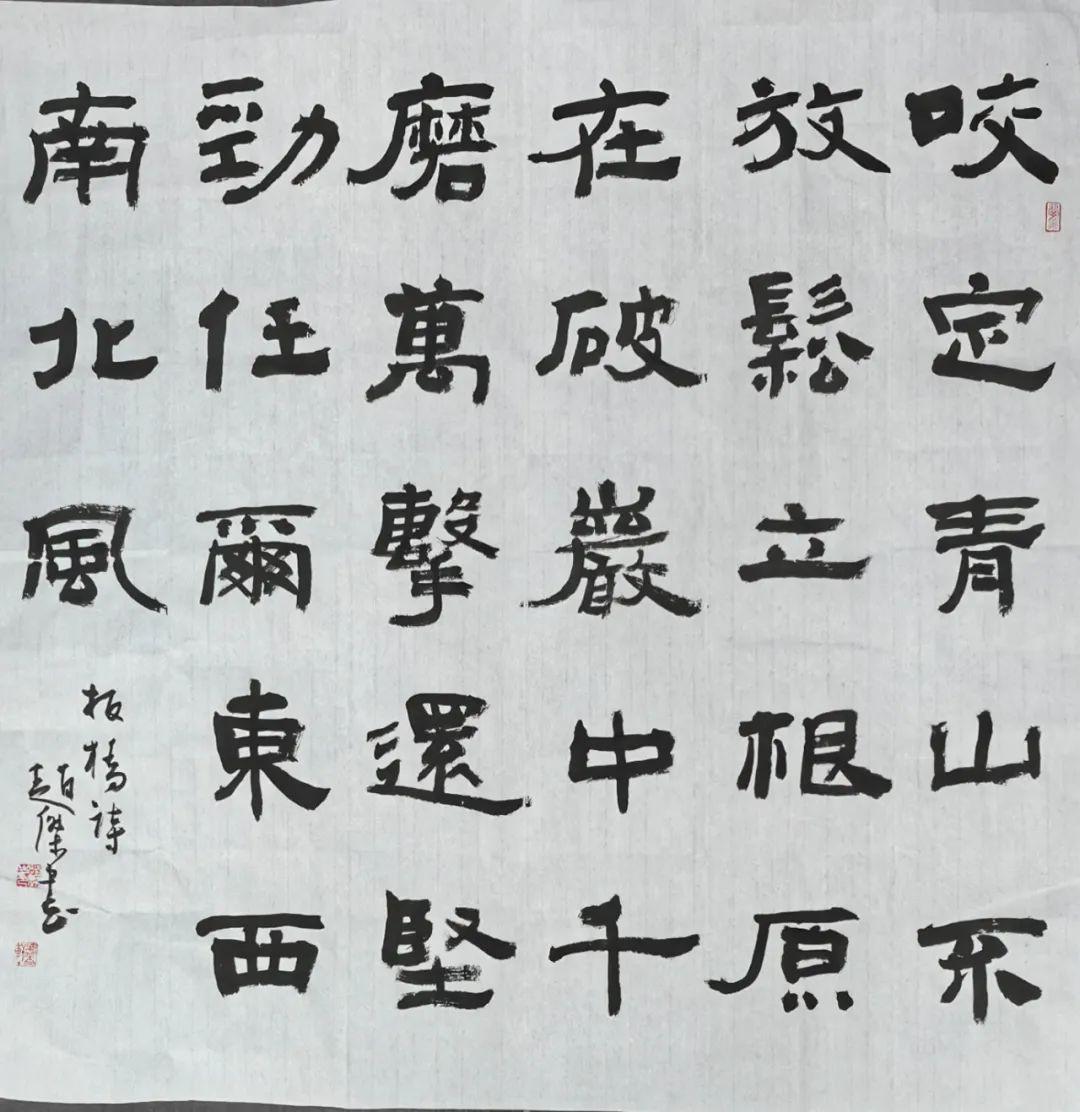 咬定青山不
放鬆立根原
在破巖中千
磨萬擊還堅
勁任爾東西
南北風
板橋詩
趙傑書